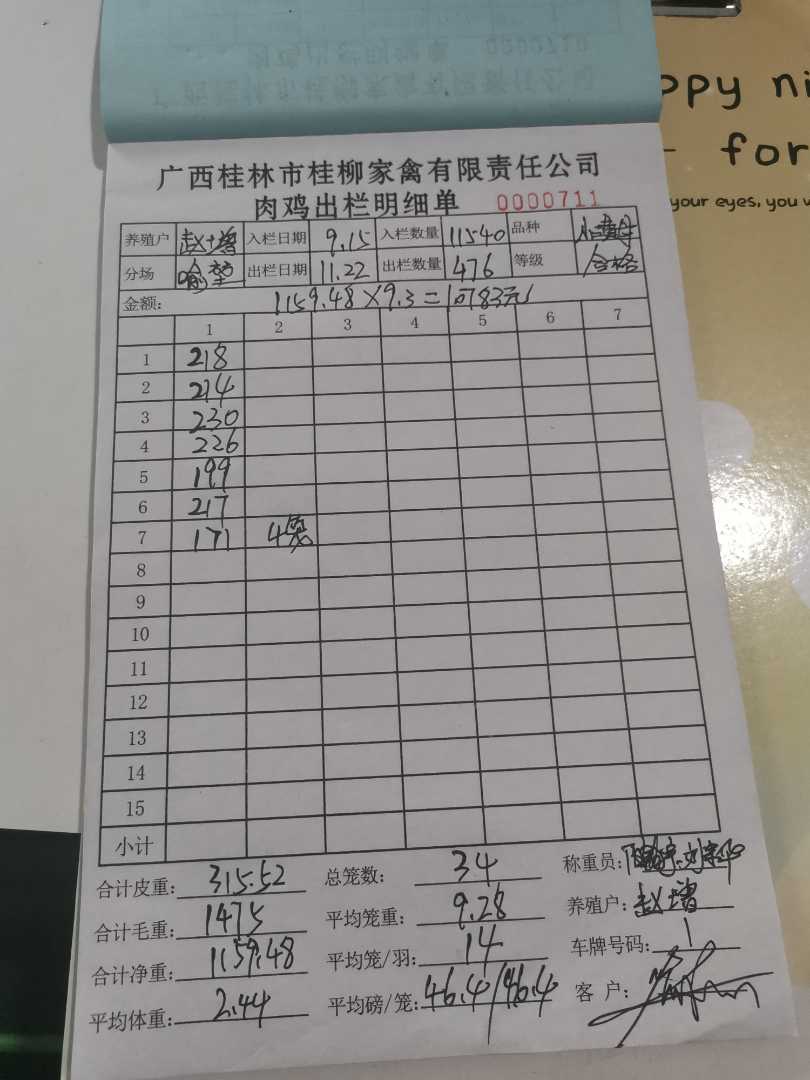 ppy ni
for
your eyes, you w
广西桂林市桂柳家禽有限责任公司
肉鸡出栏明细单 0000711
养殖户 赵增 入栏日期 9.15 入栏数量 11540 品种
分场 出栏日期 11.22 出栏数量 476 等级 合格
金额: 1159.48×9.3=10783元
1 2 3 4 5 6 7
1 218
2 214
3 230
4 226
5 199
6 217
7 171 4笼
8
9
10
11
12
13
14
15
小计
合计皮重: 315.52 总笼数: 34 称重员:
合计毛重: 1475 平均笼重: 9.28 养殖户: 赵增
合计净重: 1159.48 平均笼/羽: 14 车牌号码: 1
平均体重: 2.44 平均磅/笼: 46.4/46.4 客户: